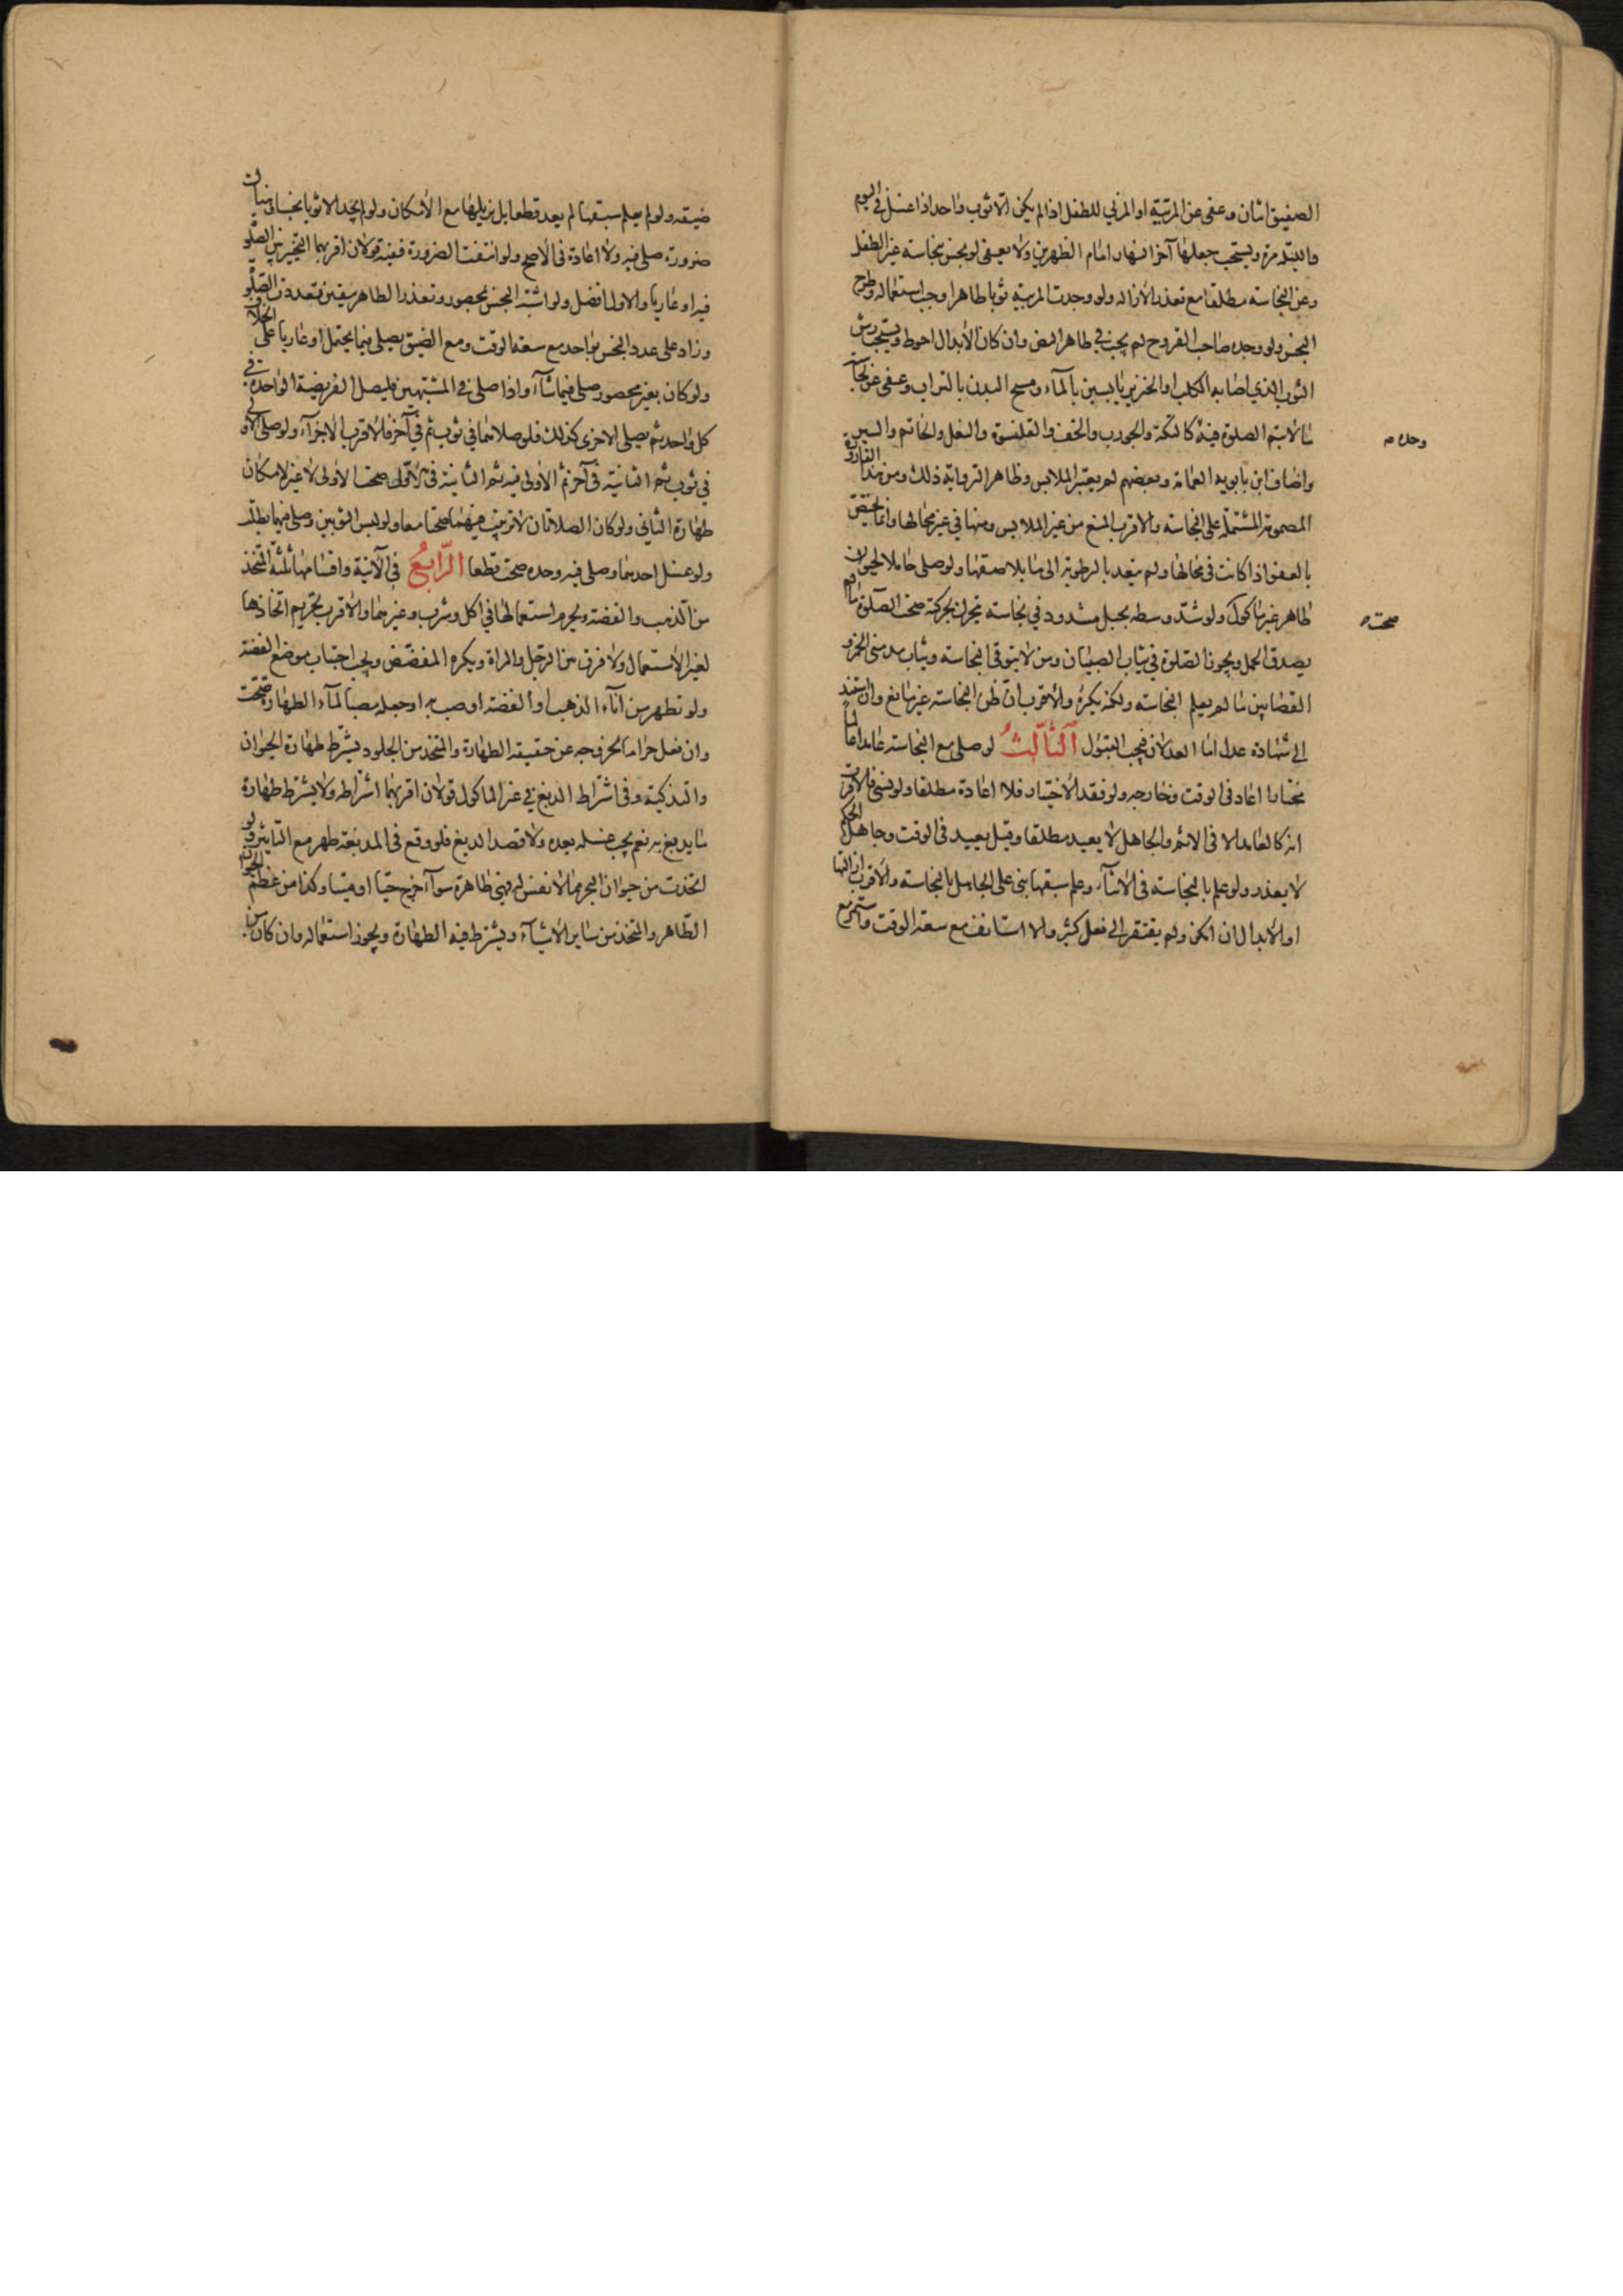 الصفيق اثنان وعفى عن المربية او المربي للطفل اذا لم يكن الا ثوب واحد اذا غسل في اليوم
والليلة مرة ويستحب جعلها آخر النهار امام الظهرين ولا يعفى لو نجس بنجاسة غير الطفل
وعن النجاسة مطلقا مع تعذر الازالة ولو وجدت المربية ثوبا طاهرا وجب استعماله وطرح
النجس ولو وجده صاحب القروح لم يجب في ظاهر النص وان كان الابدال احوط ويستحب رش
الثوب الذي اصابه الكلب او الخنزير يابسين بالماء ومسح البدن بالتراب وعفى عن نجاسة
ما لا يتم الصلوة فيه كالتكة والجورب والخف والقلنسوة والنعل والخاتم والسير
وحده
واضاف ابن بابويه العمامة وبعضهم لم يعتبر الملابس وظاهر الرواية ذلك ومن هنا القارورة
المصمومة المشتملة على النجاسة والاقرب المنع من غير الملابس ومنها في غير محالها وانما يختص
بالعفو اذا كانت في محالها ولم يتعد بالرطوبة الى ما يلاصقها ولو صلى حاملا لحيوان
طاهر غير ماكول ولو شد وسطه بحبل مشدود في نجاسة يتحرك بحركته صحت الصلوة ما لم
صحت
يصدق الحمل ويجوز الصلوة في ثياب الصبيان ومن لا يتوقى النجاسة وثياب مدمني الخمر و
القصابين ما لم يعلم النجاسة ولكنه يكره والاقرب ان ظن النجاسة غير مانع وان استند
الى شهادة عدل اما العدلان فيجب القبول الثالث لو صلى مع النجاسة عامدا عالما
مختارا اعاد في الوقت وخارجه ولو فقد الاختيار فلا اعادة مطلقا ولو نسي فالاقرب
انه كالعامد الا في الاثم والجاهل لا يعيد مطلقا وقيل يعيد في الوقت وجاهل الحكم
لا يعذر ولو علم بالنجاسة في الاثناء وعلم سبقها بنى على الجاهل بالنجاسة والاقرب ازالتها
او الابدال ان امكن ولم يفتقر الى فعل كثير والا استانف مع سعة الوقت واستمر مع
ضيقه ولو لم يعلم سبقها لم يعد قطعا بل يزيلها مع الامكان ولو لم يجد الا ثوبا نجسا
ضرورة صلى فيه ولا اعادة في الاصح ولو انتفت الضرورة ففيه قولان اقربهما التخيير بين الصلوة
فيه او عاريا والاول افضل ولو اشتبه النجس بمحصور وتعذر الطاهر بيقين تعددت الصلوة
وزاد على عدد النجس بواحد مع سعة الوقت ومع الضيق يصلي فيما يحتمل او عاريا على الخلاف
ولو كان بغير محصور صلى فيما شاء واذا صلى في المشتبهين فليصل الفريضة الواحدة في
كل واحد ثم يصلي الاخرى كذلك فلو صلاهما في ثوب ثم في آخر فالاقرب الاجزاء ولو صلى الاولى
في ثوب ثم الثانية في آخر ثم الاولى فيه ثم الثانية في الاول صحت الاولى لا غير لامكان
طهارة الثاني ولو كان الصلاتان لا ترتيب فيهما صحتا معا ولو لبس الثوبين وصلى فيهما بطلت
ولو غسل احدهما وصلى فيه وحده صحت قطعا الرابع في الآنية واقسامها ثلثة المتخذ
من الذهب والفضة ويحرم استعمالها في اكل وشرب وغيرهما والاقرب تحريم اتخاذها
لغير الاستعمال ولا فرق بين الرجل والمراة ويكره المفضض ويجب اجتناب موضع الفضة
ولو تطهر من آناء الذهب او الفضة او صب به او جعله مصبا لماء الطهارة صحت
وان فعل حراما لخروجه عن حقيقة الطهارة والمتخذ من الجلود يشترط طهارة الحيوان
والتذكية وفي اشتراط الدبغ في غير الماكول قولان اقربهما اشتراطه ولا يشترط طهارة
ما يدبغ به نعم يجب غسله بعده ولا قصد الدبغ فلو وقع في المدبغة طهر مع التاثير ولو
اتخذت من حيوان البحر مما لا نفس له فهي طاهرة سواء اخرج حيا او ميتا وكذا من عظم الحيوان
الطاهر والمتخذ من ساير الاشياء ويشترط فيه الطهارة ويجوز استعماله وان كان من